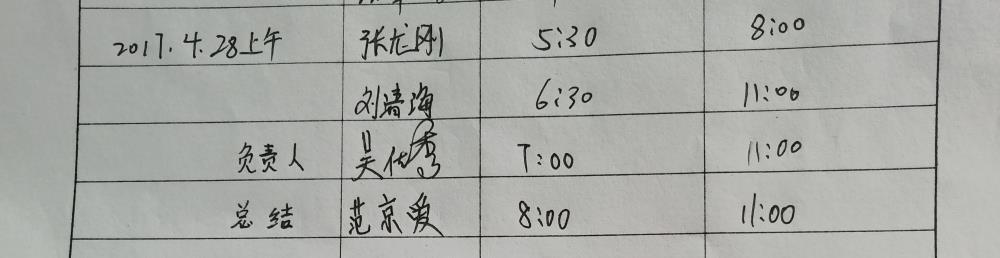 2017.4.28上午 张龙刚 5:30 8:00
刘清海 6:30 11:00
负责人 吴优秀 7:00 11:00
总结 范京爱 8:00 11:00